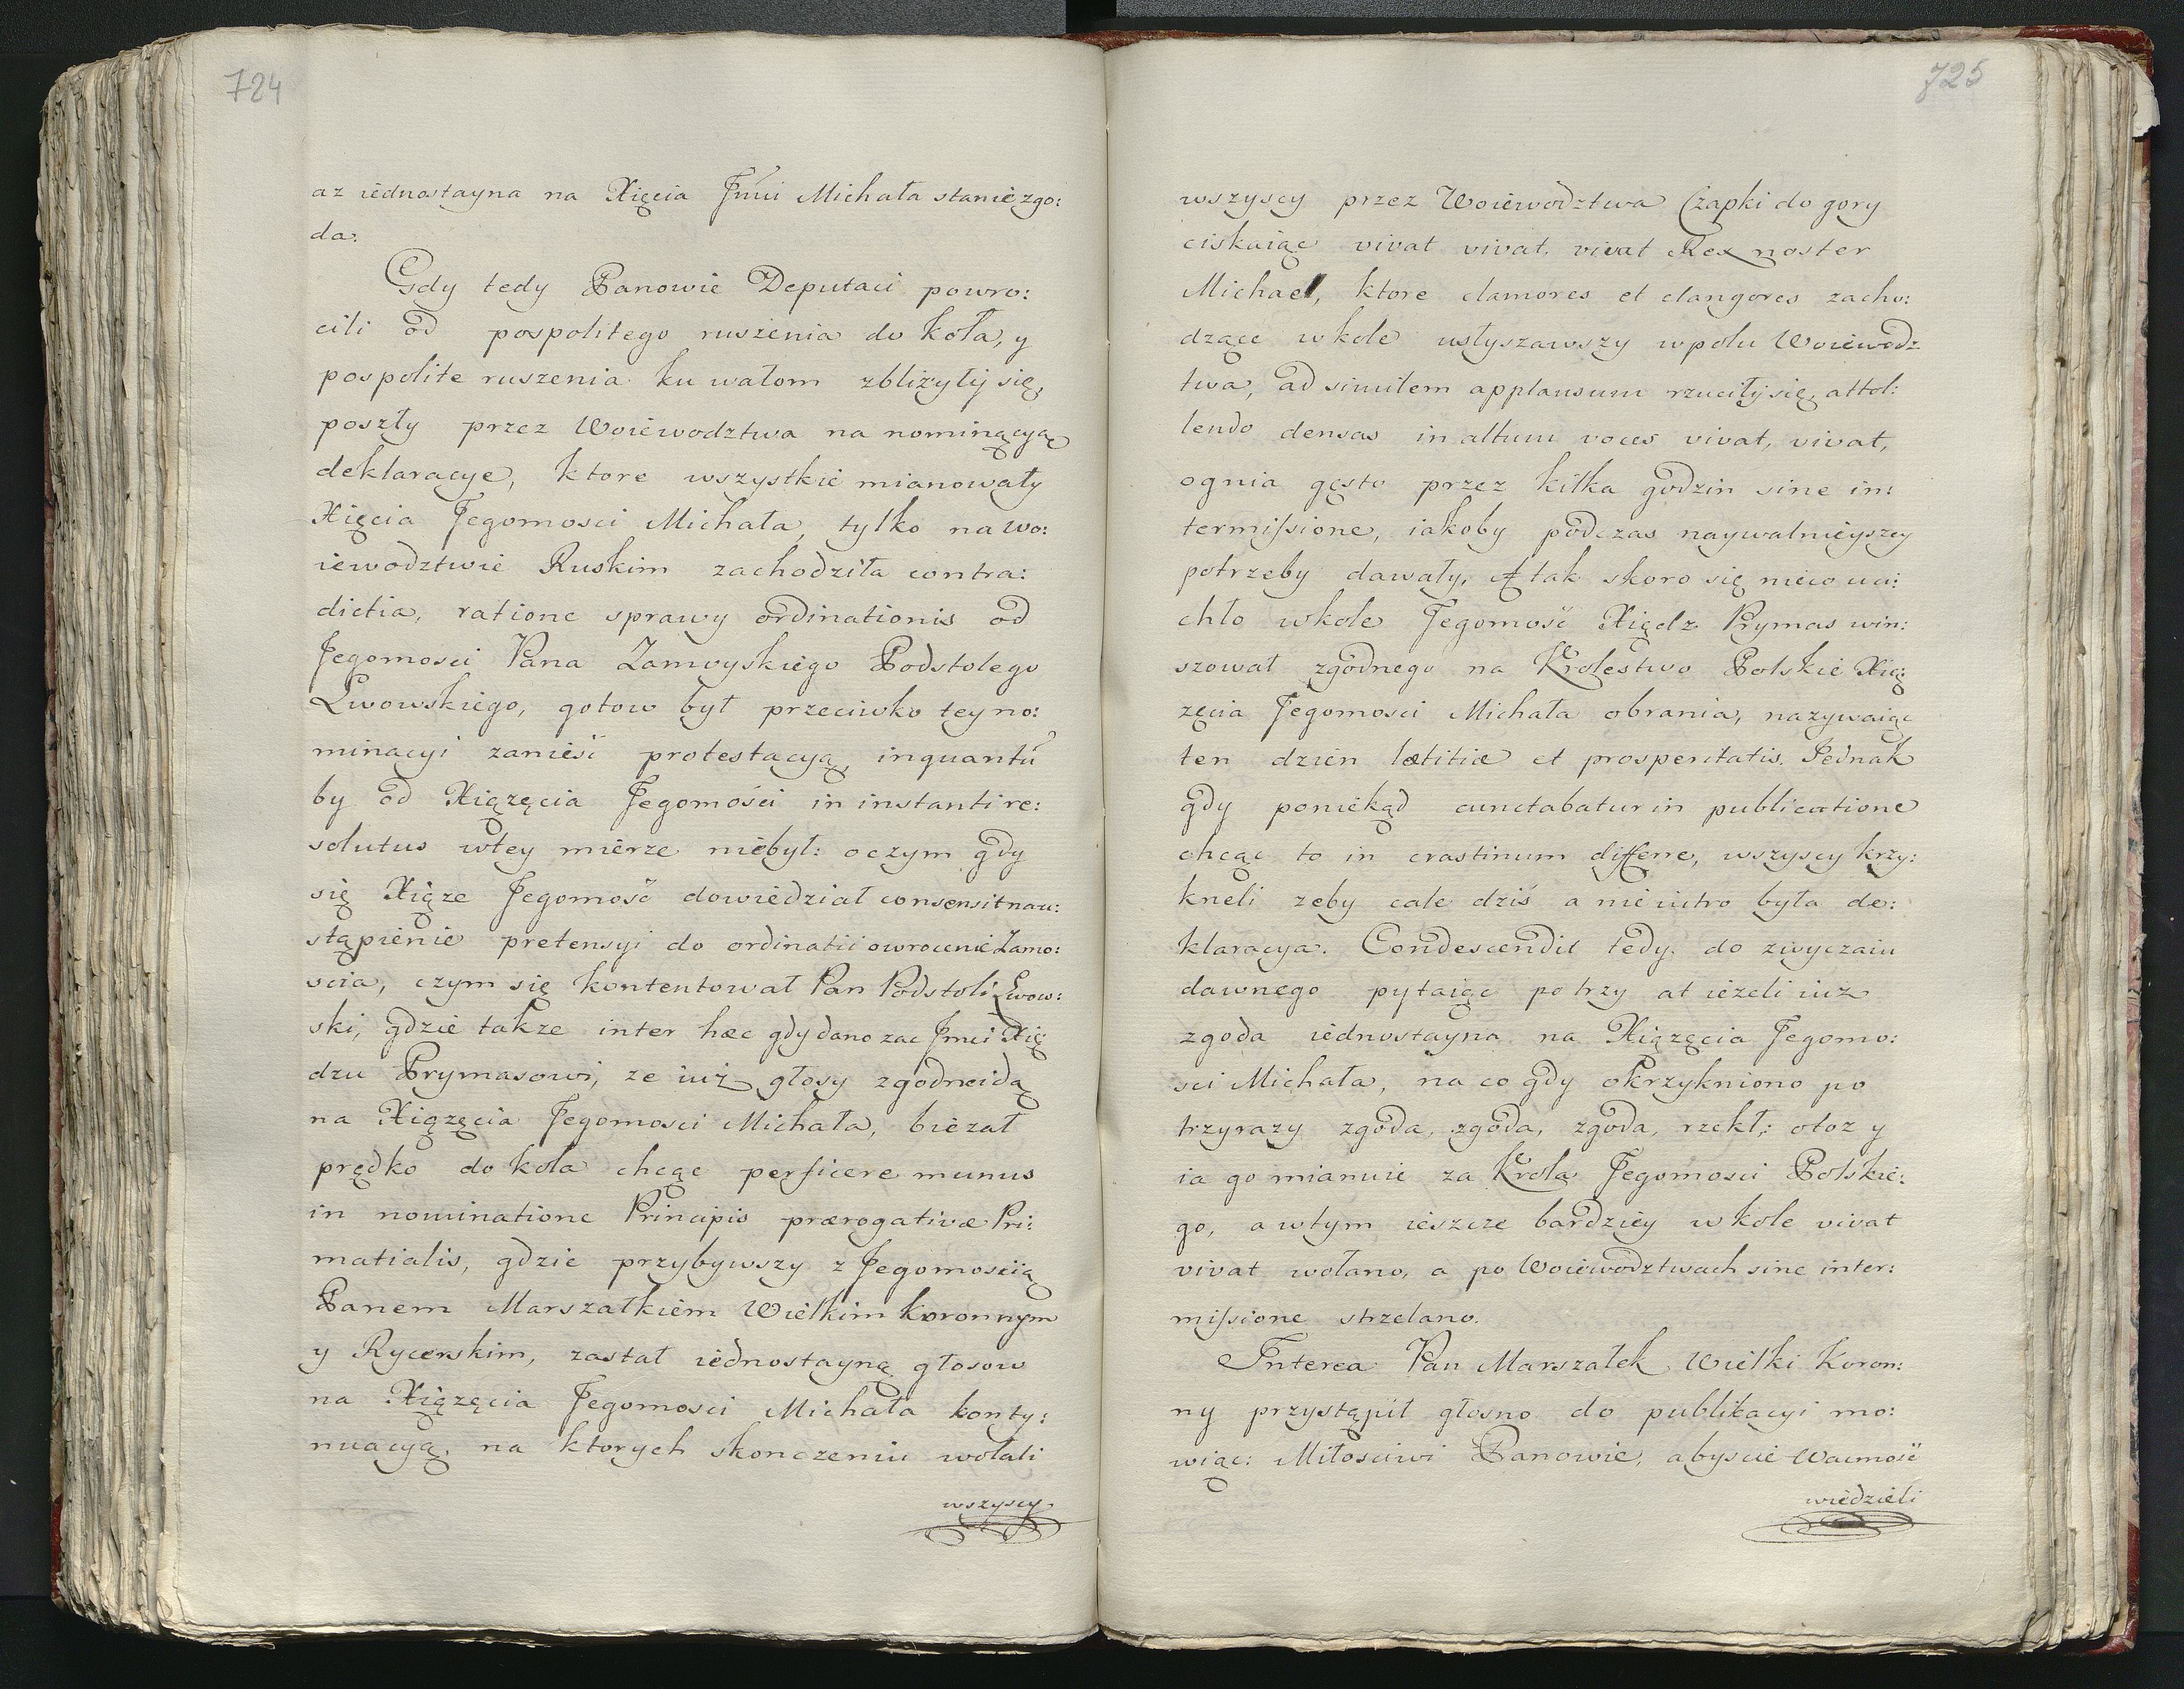 724
az iednostayna na Xięcia Jmći Michała stanie zgo:
da.
Gdy tedy Panowie Deputaci powro:
cili od pospolitego ruszenia do koła, y
pospolite ruszenia ku wałom zbliżyłÿ się,
poszły przez Woiewodztwa na nominącyą
deklaracye, ktore wszystkie mianowały
Xięcia Jegomosci Michała, tylko na wo:
iewodztwie Ruskim zachodziła contra:
dictia, ratione sprawy ordinationis od
Jegomosci Pana Zamoyskiego Podstolego
Lwowskiego, gotow był przeciwko tey no:
minacyi zanieść protestacyą, inquantũ
by od Xiązęcia Jegomości in instanti re:
solutus wtey mierze niebył: oczym gdy
się Xiąze Jegomość dowiedział consensit na u:
stąpienie pretensyi do ordinatii owrocenie Zamo:
scia, czym się kontentował Pan Podstoli Lwow:
ski, gdzie takze inter hæc gdy dano zac Jmci Xię
dzu Prymasowi, ze iuż głosy zgodne idą
na Xiązęcia Jegomosci Michała, biezał
prędko do koła chcąc perficere munus
in nominatione Principis prærogativæ Pri:
matialis, gdzie przybywszy z Jegomoscią
Panem Marszałkiem Wielkim Koronnym
y Rycerskim, zastał iednostayną głosow
na Xiązęcia Jegomosci Michała konty:
nuacyą, na ktorych skonczeniu wołali
wszyscy
725
wszyscy przez Woiewodztwa Czapki do gory
ciskaiąc vivat vivat, vivat Rex noster
Michael, ktore clamores et clangores zacho:
dzące w kole usłyszawszy w polu Woiewodz
twa, ad similem applausum rzuciłÿ się, attol:
lendo densas in altum voces vivat, vivat,
ognia gęsto przez kilka godzin sine in:
termissione, iakoby podczas naywalnieyszey
potrzeby dawały, A tak skoro się nieco uci:
chło wkole Jegomość Xiądz Prymas win:
szował zgodnego na Krolestwo Polskie Xią:
zęcia Jegomosci Michała obrania, nazywaiąc
ten dzien lætitiæ et prosperitatis. Jednak
gdy poniekąd cunctabatur in publicatione
chcąc to in crastinum differre, wszyscy krzy:
kneli zeby cale dziś a nie iutro była de:
klaracya. Condescendit tedy do zwyczaiu
dawnego pytaiąc po trzy at iezeli iuz
zgoda iednostayna na Xiązęcia Jegomo:
sci Michała, na co gdy okrzykniono po
trzyrazy zgoda, zgoda, zgoda, rzekł: otoz y
ia go mianuie za Krola Jegomosci Polskie:
go, a wtym ieszcze bardziey w kole vivat
vivat wołano, a po Woiewodztwach sine inter:
missione strzelano.
Interea Pan Marszałek Wielki Koron:
ny przystąpił głosno do publikacyi mo:
wiąc: Miłosciwi Panowie, abyscie Wacmość
wiedzieli